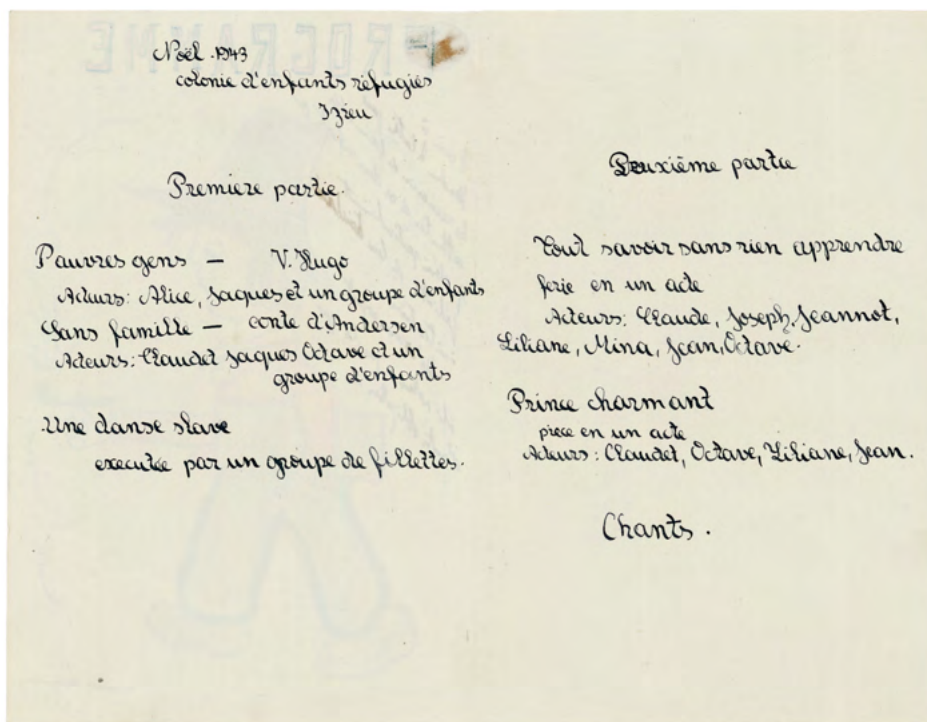 Noël. 1943
colonie d'enfants réfugiés
Izieu
Premiere partie.
Pauvres gens — V. Hugo
Acteurs: Alice, Jaques et un groupe d'enfants
Sans famille — conte d'Andersen
Acteurs: Claudet Jaques Octave et un
groupe d'enfants
Une danse slave
executée par un groupe de fillettes.
Deuxième partie
Tout savoir sans rien apprendre
ferie en un acte
Acteurs: Claude, Joseph, Jeannot,
Liliane, Mina, Jean, Octave.
Prince charmant
piece en un acte
Acteurs: Claudet, Octave, Liliane, Jean.
Chants.
PROGRAMME